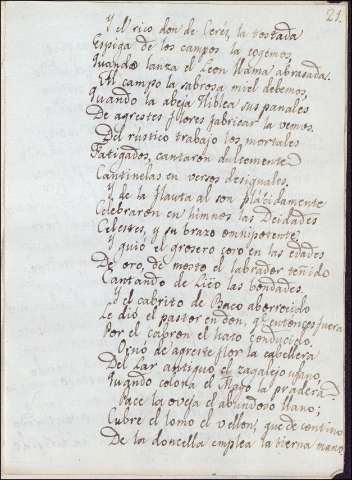 21.
Y el rico don de Cerés, la tostada
Espiga de los campos la cogemos,
Quando lanza el Leon llama abrasada.
Al campo la sabrosa miel debemos,
Quando la abeja Hiblea sus panales
De agrestes flores fabricar la vemos.
Del rústico trabajo los mortales
Fatigados, cantaron dulcemente
Cantinelas en versos desiguales.
Y de la flauta al son plácidamente
Celebraron en himnos las Deidades
Celestes, y su brazo omnipotente.
Y guió el grosero coro en las edades
De oro, de mosto el labrador teñido
Cantando de Lieo las bondades.
Y el cabrito de Baco aborrecido
Le dió el pastor en don, q.e entonces fuera
Por el cabron el hato conducido.
Ornó de agreste flor la cabellera
Del Lar antiguo el zagalejo ufano,
Quando coloria el Mayo la pradera.
Pace la oveja el abundoso llano;
Cubre el lomo el vellon, que de contino
De la doncella emplea la tierna mano.